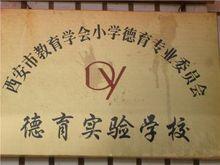 西安市教育学会小学德育专业委员会
德育实验学校